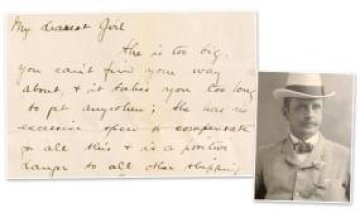 My dearest Girl
She is too big.
You can't find your way
about, & it takes you too long
to get anywhere; She has no
excessive speed to compensate
for all this & is a positive
danger to all other shipping